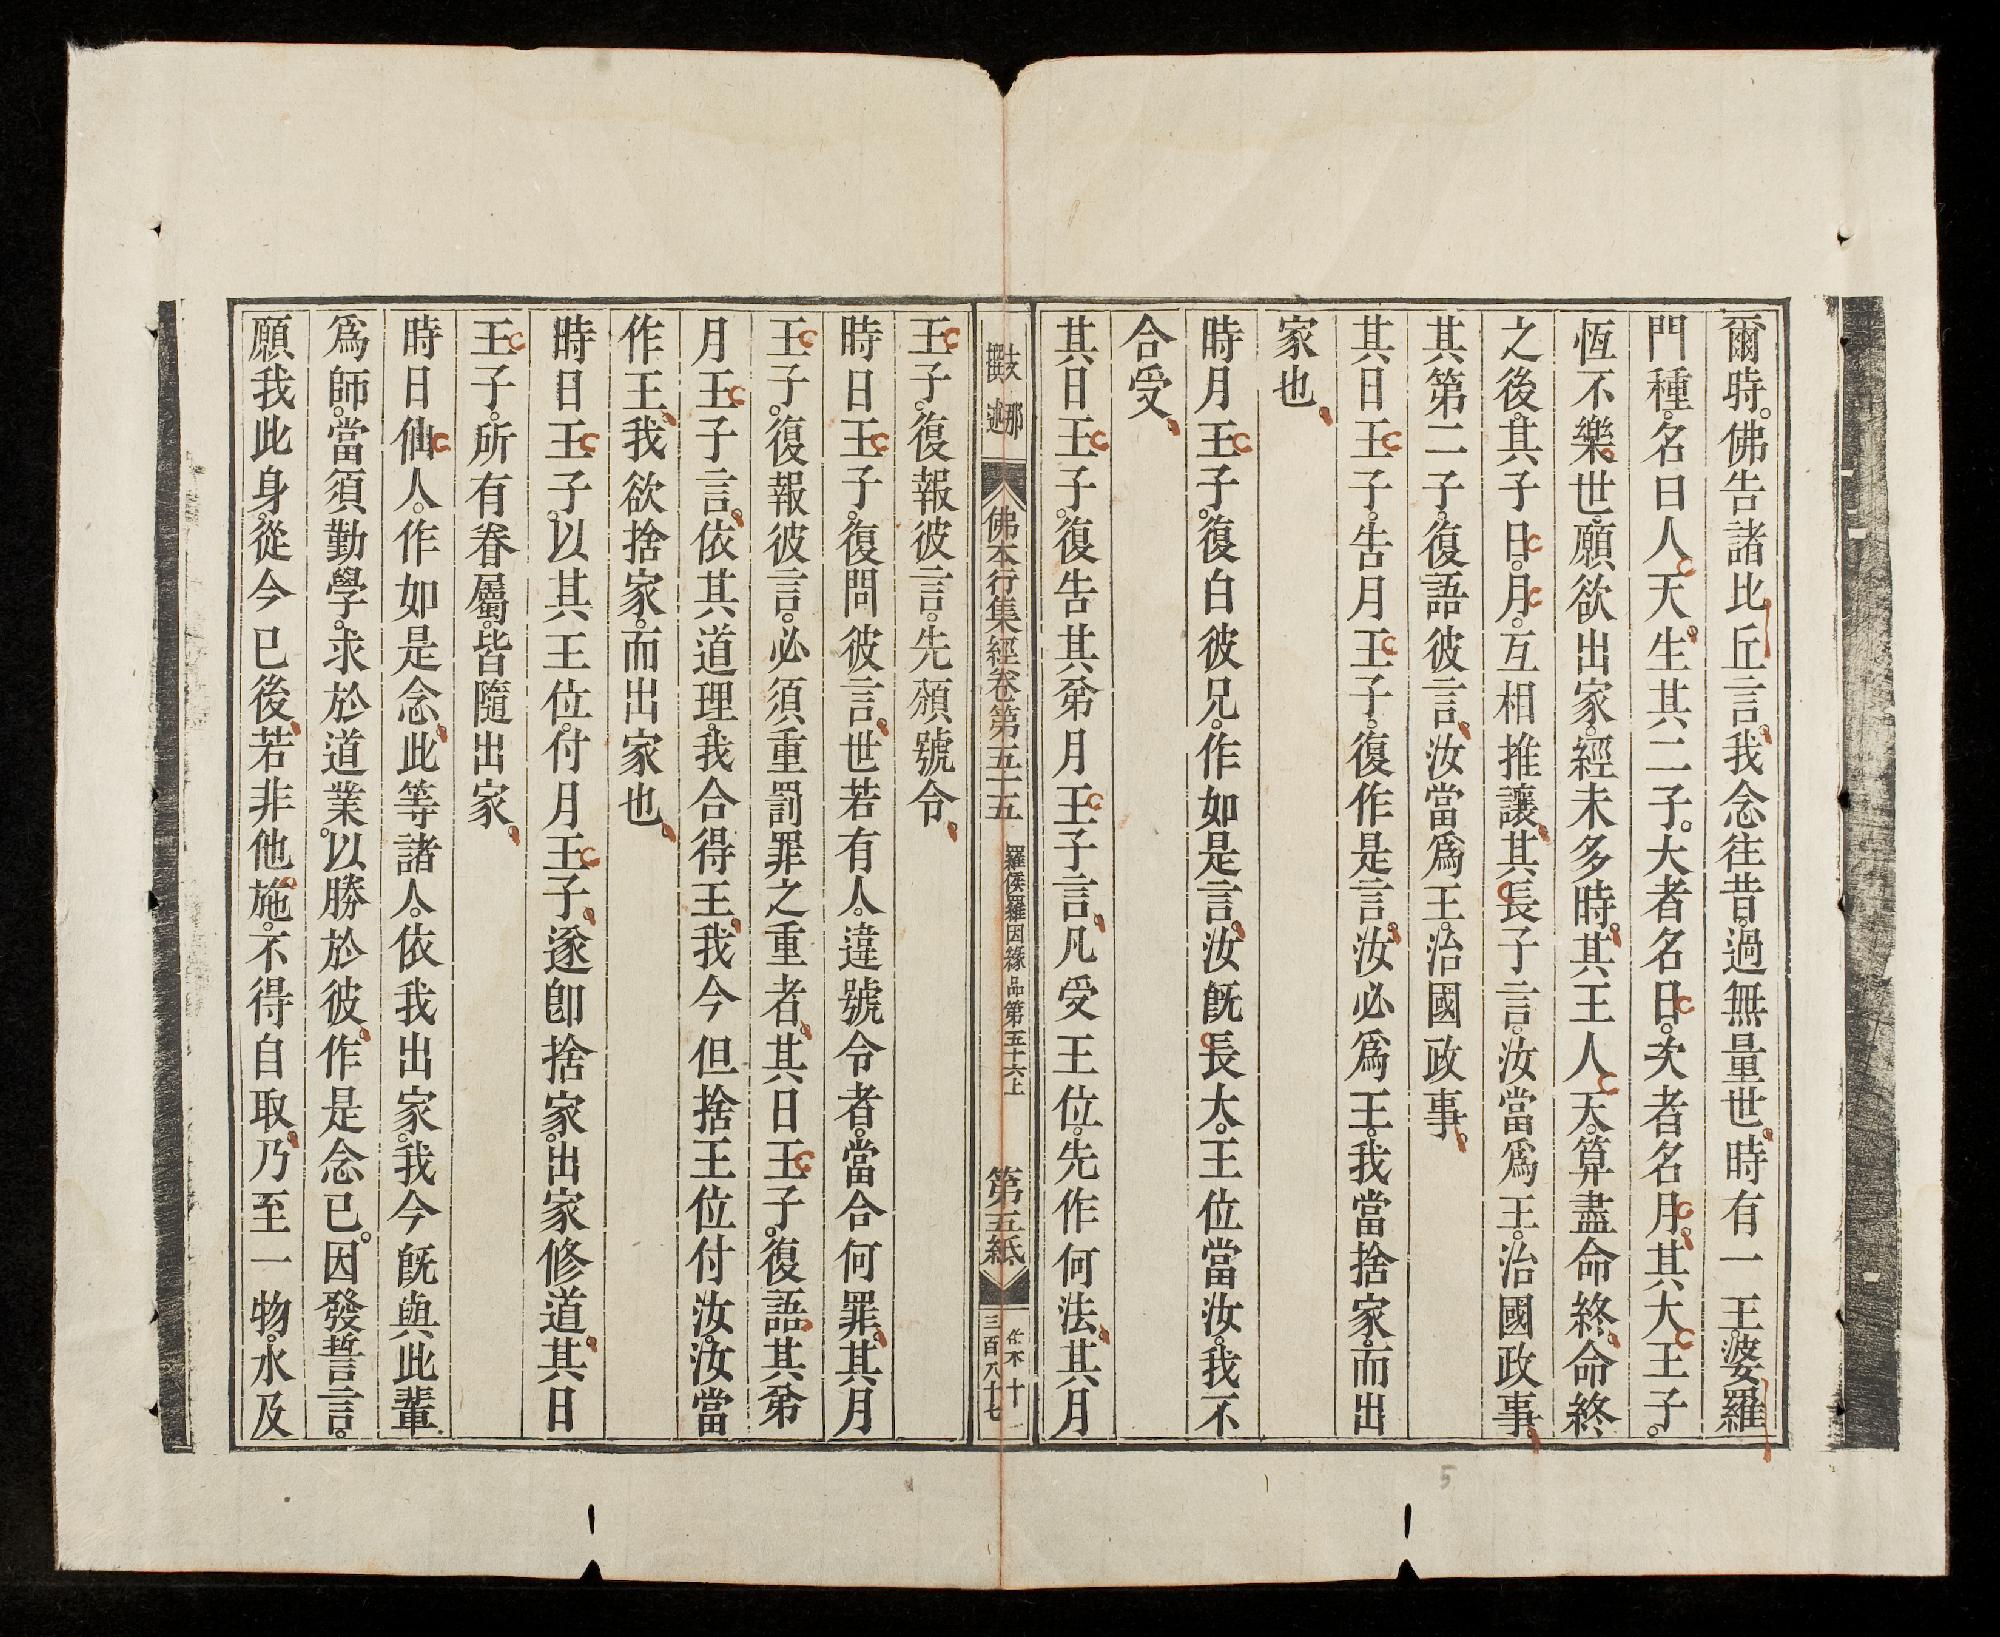 爾時。佛告諸比丘言。我念往昔。過無量世。時有一王。婆羅
門種。名曰人天。生其二子。大者名日。次者名月。其大王子。
恆不樂世。願欲出家。經未多時。其王人天。算盡命終。命終
之後。其子日。月。互相推讓。其長子言。汝當爲王。治國政事。
其第二子。復語彼言。汝當爲王。治國政事。
其日王子。告月王子。復作是言。汝必爲王。我當捨家。而出
家也。
時月王子。復白彼兄。作如是言。汝旣長大。王位當汝。我不
合受。
其日王子。復告其弟月王子言。凡受王位。先作何法。其月
佛本行集經卷第五十五 羅侯羅因緣品第五十六上 第五紙 三百八十七
王子。復報彼言。先頒號令。
時日王子。復問彼言。世若有人。違號令者。當合何罪。其月
王子。復報彼言。必須重罰罪之重者。其日王子。復語其弟
月王子言。依其道理。我合得王。我今但捨王位付汝。汝當
作王。我欲捨家。而出家也。
時日王子。以其王位。付月王子。遂卽捨家。出家修道。其日
王子。所有眷屬。皆隨出家。
時日仙人。作如是念。此等諸人。依我出家。我今旣與此輩
爲師。當須勤學。求於道業。以勝於彼。作是念已。因發誓言。
願我此身。從今已後。若非他施。不得自取。乃至一物。水及